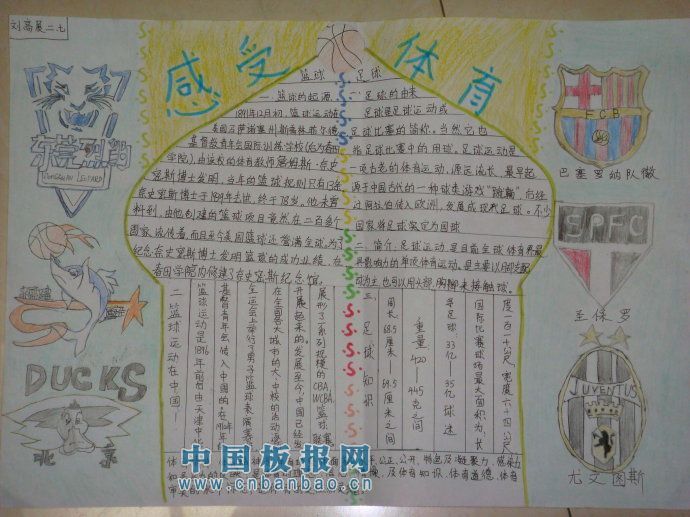 刘高展二七
感受体育
篮球 足球
一、篮球的起源
1891年12月初，篮球运动由
美国马萨诸塞州斯普林菲尔德
基督教青年会国际训练学校（后为春田
学院）。由该校的体育教师詹姆斯·奈史
密斯博士发明，当年的篮球规则只有13条
奈史密斯博士于1939年去世，终于78岁。他未曾
料到，由他创建的篮球项目竟然在二百多个
国家流传着，而且至今美国篮球还誉满全球。为了
纪念奈史密斯博士发明篮球的成功业绩，在
春田学院内修建了奈史密斯纪念馆。
一、足球的由来
足球是足球运动或
足球比赛的简称，当然它也
指足球比赛中的用球。足球运动是
一项古老的体育运动，源远流长，最早起
源于中国古代的一种球类游戏“蹴鞠”，后经
过阿拉伯传入欧洲，发展成现代足球。不少
国家将足球定为国球
二、简介：足球运动，是目前全球体育界最
具影响力的单项体育运动，是主要以用脚支配
球为主，也可以用头部，胸脚来接触球。
二、篮球运动在中国
篮球运动是1896年前后由天津中北
基督教青年会传入中国的，在1910年
全运会上举行了男子篮球表演赛
在全国各大城市的大中校的活动逐
开展起来的。发展至今中国已经出
展形了系列规模的CBA、WCBA、篮球联赛
三、足球知识
周长 68.5厘米—69.5厘米之间
重量 420—445克之间
单足球 33亿—35亿球迷
国际比赛球场最大面积为，长
度一百一十公尺，宽度六十四公尺
东莞烈豹
DONGGUAN LEOPARD
DUCKS
北京
FCB
巴塞罗纳队徽
SPFC
圣保罗
JUVENTUS
尤文图斯
中国板报网
www.cnbanbao.cn